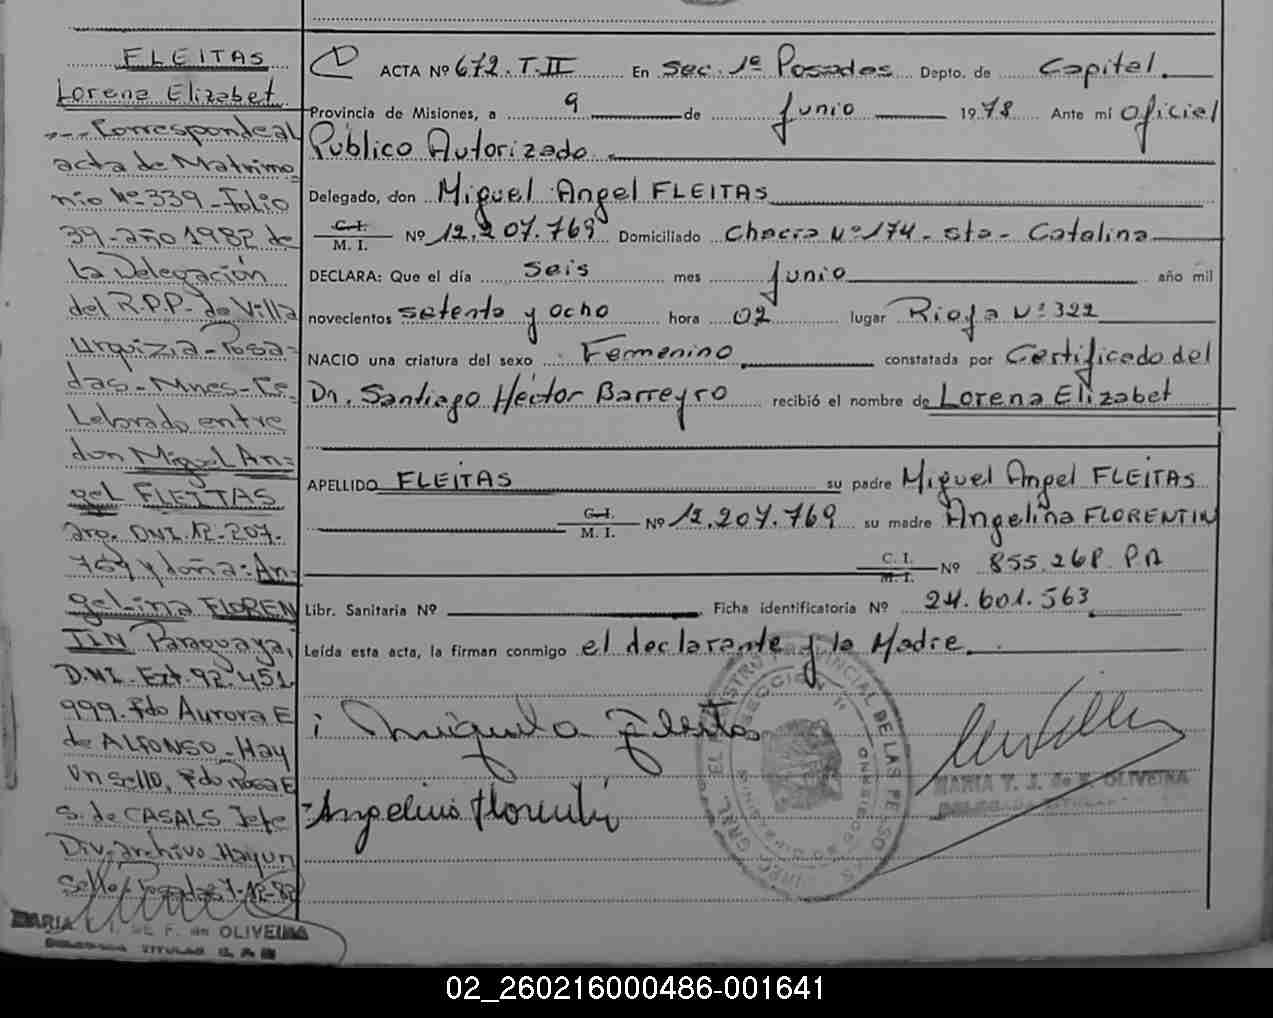 FLEITAS
Lorena Elizabet
---Corresponde al
acta de Matrimo
nio Nº 339-Folio
39-año 1982 de
La Delegación
del R.P.P- de Villa
Urquiza-Posa=
das-Mnes-Ce_
Lebrado entre
don Miguel An=
gel FLEITAS
arg. DNI.12-207.
769 y doña: An=
gelina FLOREN
TIN Paraguaya,
D.N.I. Ext. 92.451
999. Fdo Aurora E
de ALFONSO_Hay
Un Sello, Fdo Rosa E
S. de CASALS Jefe
Div. archivo Hay un
Sello Posadas 7-12-82
MARIA DE F. de OLIVEIRA
DELEGADA TITULAR
ACTA Nº 672. T. II En Sec. 1º Posadas Depto. de Capital.
Provincia de Misiones, a 9 de junio 1978 Ante mí Oficial
Público Autorizado
Delegado, don Miguel Angel FLEITAS
C. I.
M. I. Nº 12.207.769 Domiciliado Chacra Nº 174- Sta- Catalina
DECLARA: Que el día Seis mes junio año mil
novecientos setenta y ocho hora 02 lugar Rioja Nº 322
NACIO una criatura del sexo Femenino constatada por Certificado del
Dr. Santiago Héctor Barreyro recibió el nombre de Lorena Elizabet
APELLIDO FLEITAS su padre Miguel Angel FLEITAS
C. I.
M. I. Nº 12.207.769 su madre Angelina FLORENTIN
C. I.
M. I. Nº 855.268 P.A
Libr. Sanitaria Nº Ficha identificatoria Nº 24.601.563
Leída esta acta, la firman conmigo el declarante y la Madre.
Angelina Florentin
MARIA T. J. de F. OLIVEIRA
DELEGADA TITULAR
02_260216000486-001641